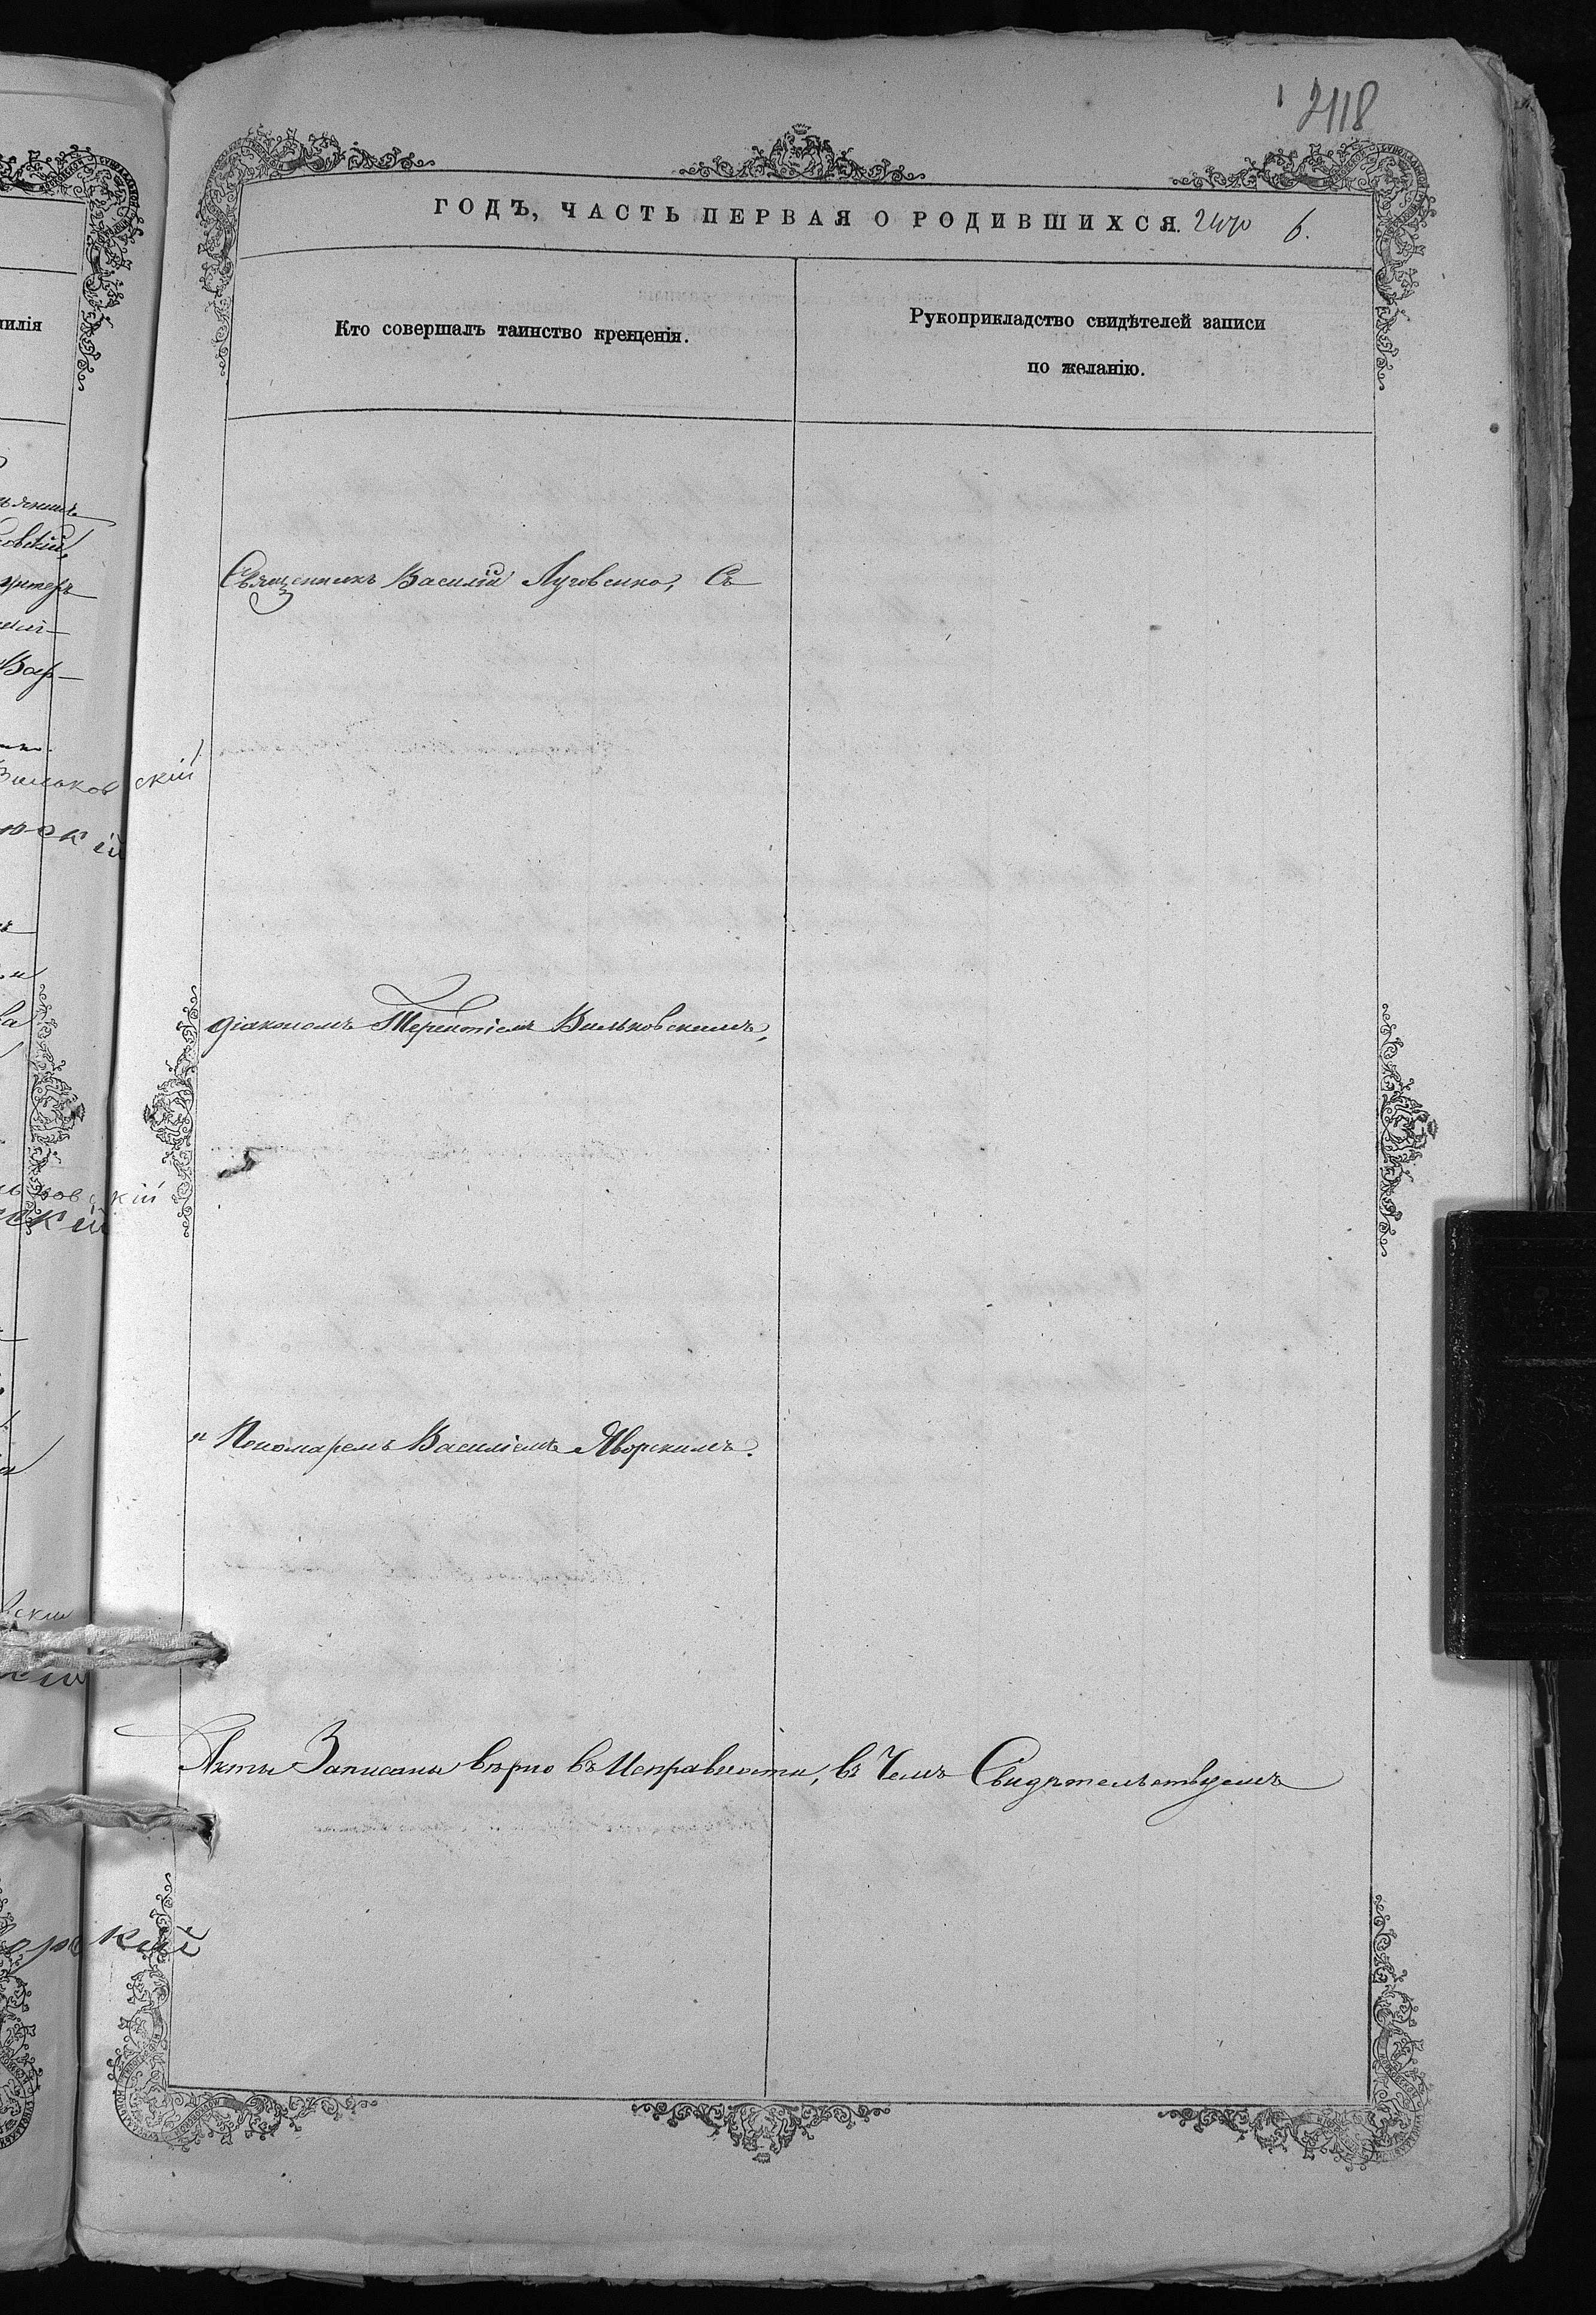 2118
ГОДЪ, ЧАСТЬ ПЕРВАЯ О РОДИВШИХСЯ. 6.
Кто совершалъ таинство крещенія.
Рукоприкладство свидѣтелей записи
по желанію.
Священникъ Василій Луговенко, Съ
діакономъ Терентіемъ Вильковскимъ,
и Пономаремъ Василіемъ Яворскимъ.
Акты Записаны вѣрно въ Исправности, въ Чемъ Свидѣтельствуемъ